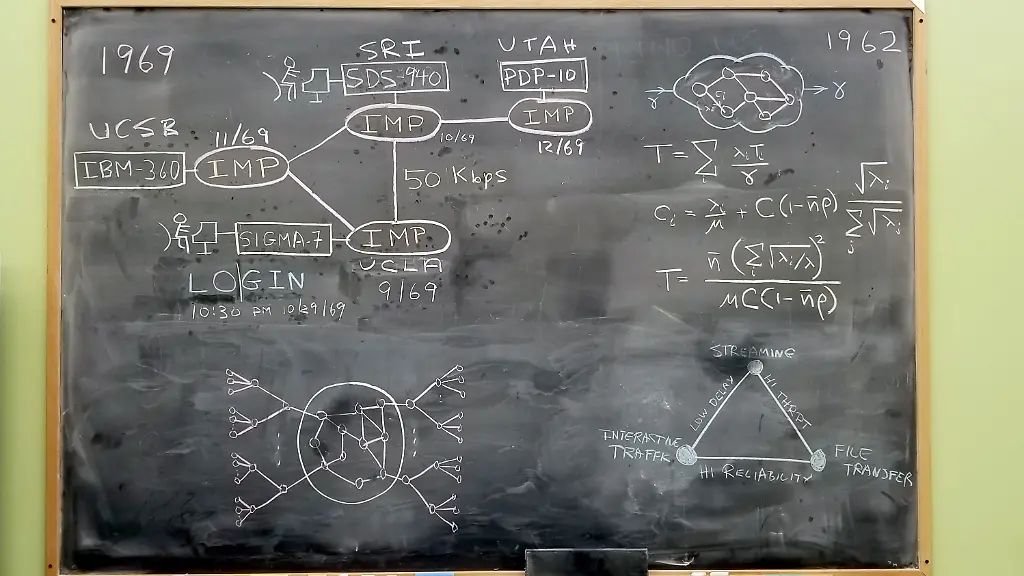 1969
SRI
UTAH
1962
SDS-940
PDP-10
IMP
10/69
IMP
12/69
UCSB
11/69
IBM-360
IMP
50 Kbps
SIGMA-7
IMP
UCLA
9/69
LO|GIN
10:30 PM 10/29/69
γ → γ
T = Σ_i λ_i T_i / γ
C_i = λ_i/μ + C(1-n̄ρ) √λ_i / Σ_j √λ_j
T = n̄ (Σ_i √λ_i/λ)² / μC(1-n̄ρ)
STREAMING
LOW DELAY
HI THRPT
INTERACTIVE
TRAFFIC
HI RELIABILITY
FILE
TRANSFER